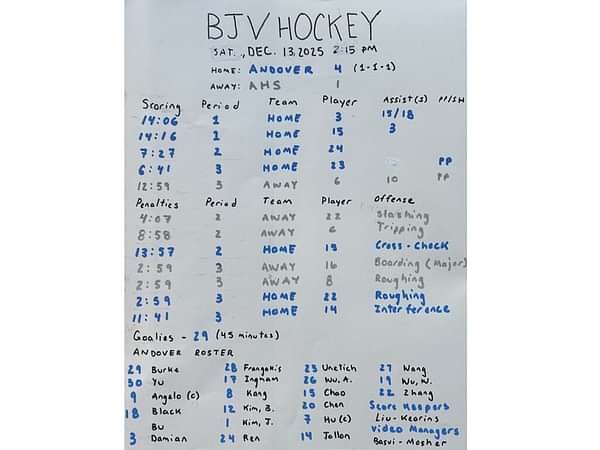 BJV HOCKEY
SAT., DEC. 13, 2025 2:15 PM
HOME: ANDOVER 4 (1-1-1)
AWAY: AHS 1
Scoring Period Team Player Assist(s) PP/SH
14:06 1 HOME 3 15/18
14:16 1 HOME 15 3
7:27 2 HOME 24
6:41 3 HOME 23 PP
12:59 3 AWAY 6 10 PP
Penalties Period Team Player Offense
4:07 2 AWAY 22 Slashing
8:58 2 AWAY 6 Tripping
13:57 2 HOME 15 Cross-Check
2:59 3 AWAY 16 Boarding (Major)
2:59 3 AWAY 8 Roughing
2:59 3 HOME 22 Roughing
11:41 3 HOME 14 Interference
Goalies - 29 (45 minutes)
ANDOVER ROSTER
29 Burke 28 Frangakis 23 Unetich 27 Wang
30 Yu 17 Ingman 26 Wu, A. 19 Wu, W.
9 Angelo (C) 8 Kang 15 Chao 22 Zhang
18 Black 12 Kim, B. 20 Chen Score Keepers
Bu 1 Kim, J. 7 Hu (C) Liu-Kearins
3 Damian 24 Ren 14 Video Managers
Basui-Mosher